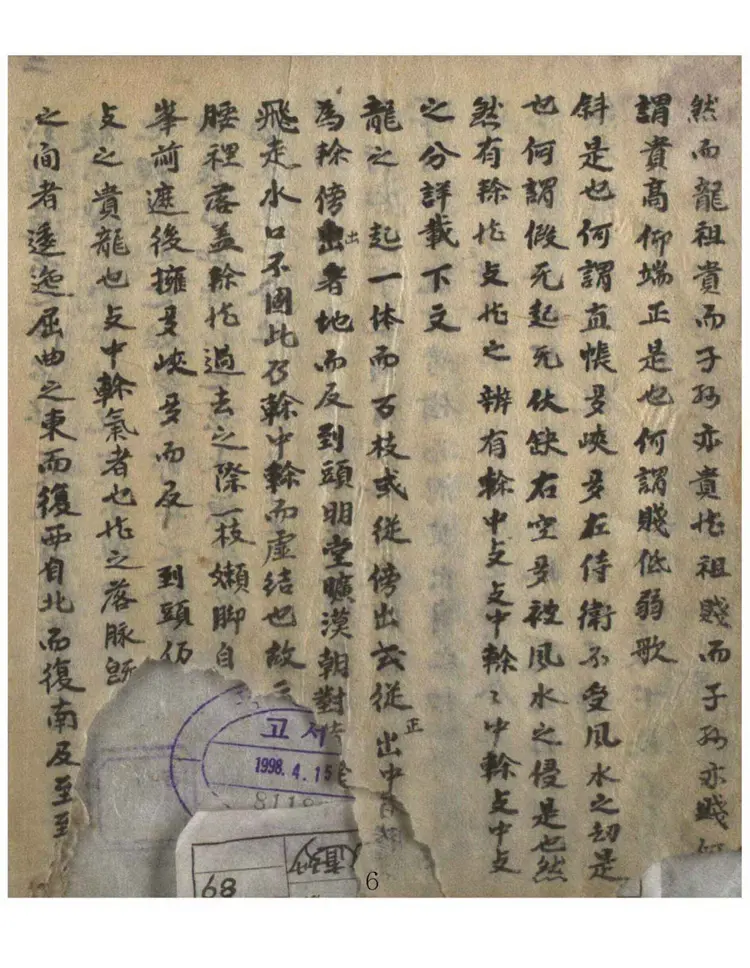 然而龍祖貴而子孫亦貴龙祖賤而子孫亦賤何
謂貴高仰端正是也何謂賤低弱歌
斜是也何謂直帳多峽多在侍衛不受風水之刧是
也何謂假死起死伏缺右空多被風水之侵是也然
然有幹龙支龙之辨有幹中支支中幹〻中幹支中支
之分詳載下文
龍之 起一体而百枝或從傍出云從正出中有
為幹傍出出者地而反到頭明堂曠漠朝對
飛走水口不固此乃幹中幹而虛結也故云
腰裡落盖幹龙過去之際一枝嬾脚自
峯前遮後擁多峽多而反 到頭仍
支之貴龍也支中幹氣者也龙之落脉既
之间者逶迤屈曲之東而復西自北而復南及至至
고서
1998. 4. 15
8118
68
6